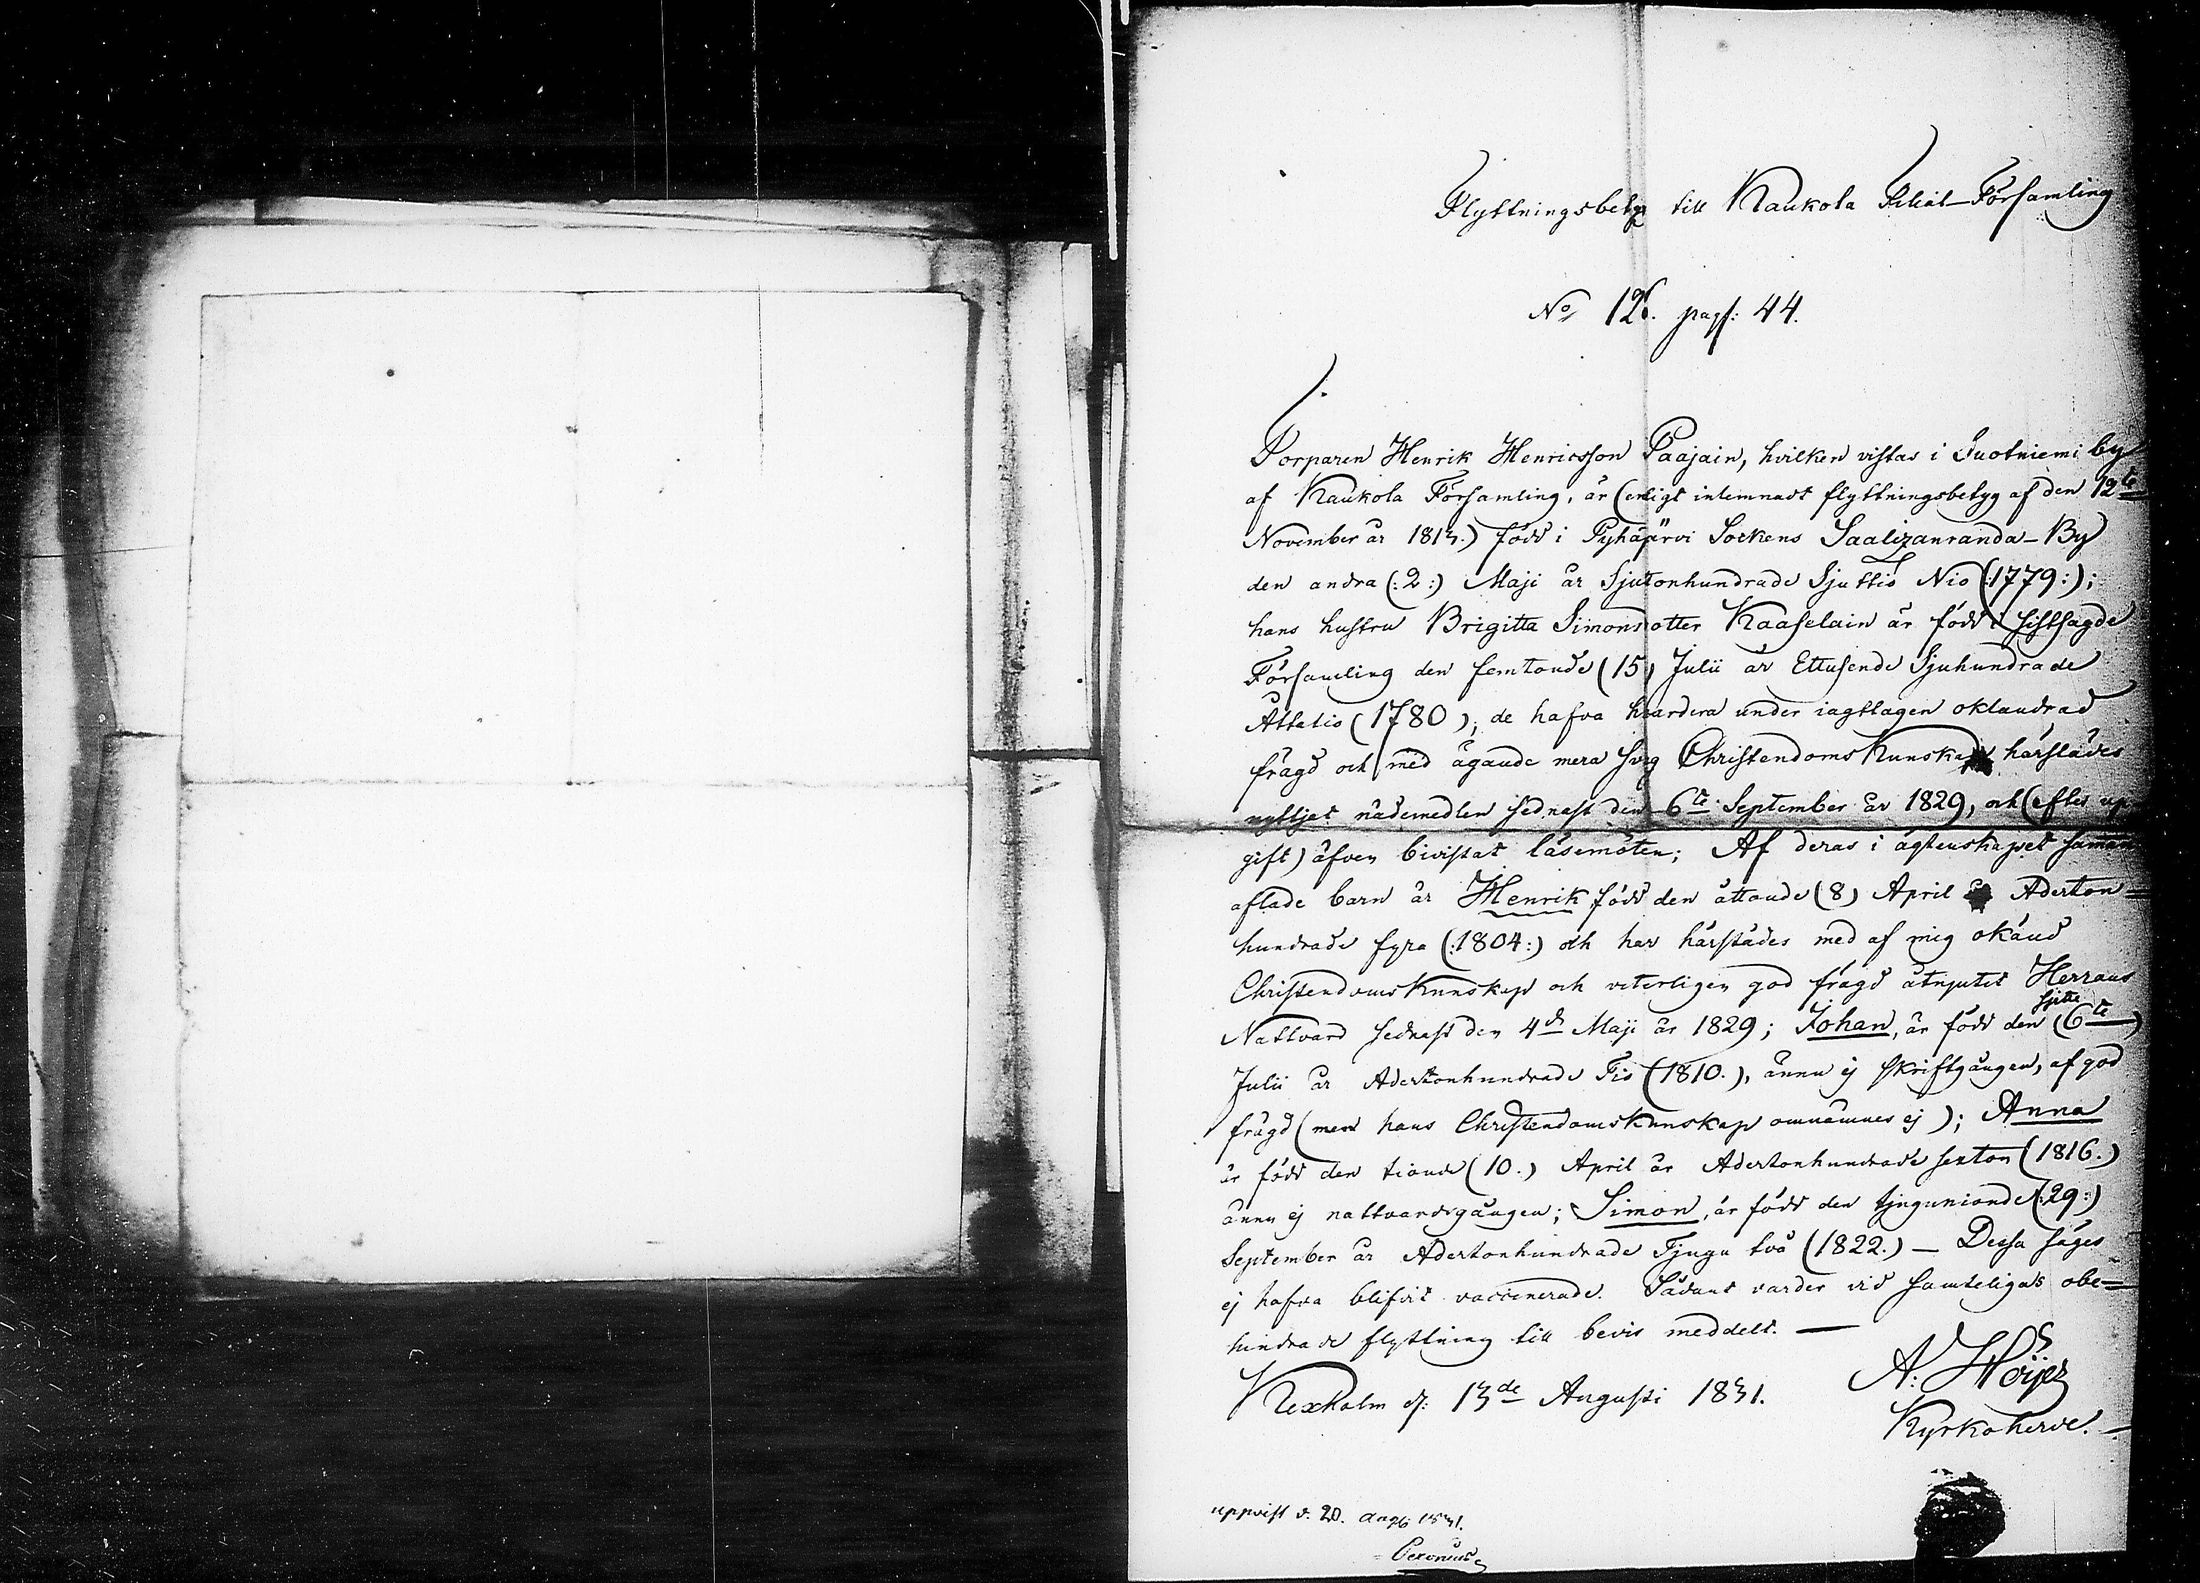 Flyttningsbetyg till Kaukola Filial-Församling
No 126. pag: 44.
Torparen Henrik Henricsson Paajain, hvilken vistas i Suotniemi by
af Kaukola Församling, är (enligt inlemnadt flyttningsbetyg af den 12te
November år 1813.) född i Pyhäjärvi Sockens Saalizanranda-By
den andra (:2:) Maji år Sjutonhundrade Sjuttio Nio (:1779:);
hans hustru Brigitta Simonsdotter Kaaselain är född i sistsagde
Församling den femtonde (15) Julii år Ettusende Sjuhundrade
Åttatio (1780); de hafva hvardera under iagttagen oklandrad
frägd och med ägande mera svag Christendoms Kunskap härstädes
nyttjat nådemedlen sednast den 6te September år 1829, och (efter up
gift) äfven bivistat läsemöten; Af deras i ägtenskapet samman
aflade barn är Henrik född den åttande (8) April år Aderton=
hundrade fyra (:1804:) och har härstädes med af mig okänd
Christendoms Kunskap och veterligen god frägd åtnjutit Herrans
Nattvard sednast den 4de Maji år 1829; Johan, är född den sjette (6te)
Julii år Adertonhundrade Tio (1810.), ännu ej skriftgången, af god
frägd (men hans Christendoms Kunskap omnämnes ej); Anna
är född den tionde (10.) April år Adertonhundrade sexton (1816.)
ännu ej nattvardsgången; Simon, är född den tjugunionde (:29:)
September år Adertonhundrade Tjugu två (1822.) — Dessa säges
ej hafva blifvit vaccinerade. Sådant varder vid samteligas obe=
hindrade flyttning till bevis meddelt. —
Kexholm d: 13de Augusti 1831.
A: Höijer
Kyrkoherde. —
uppvist d. 20. aug 1831.